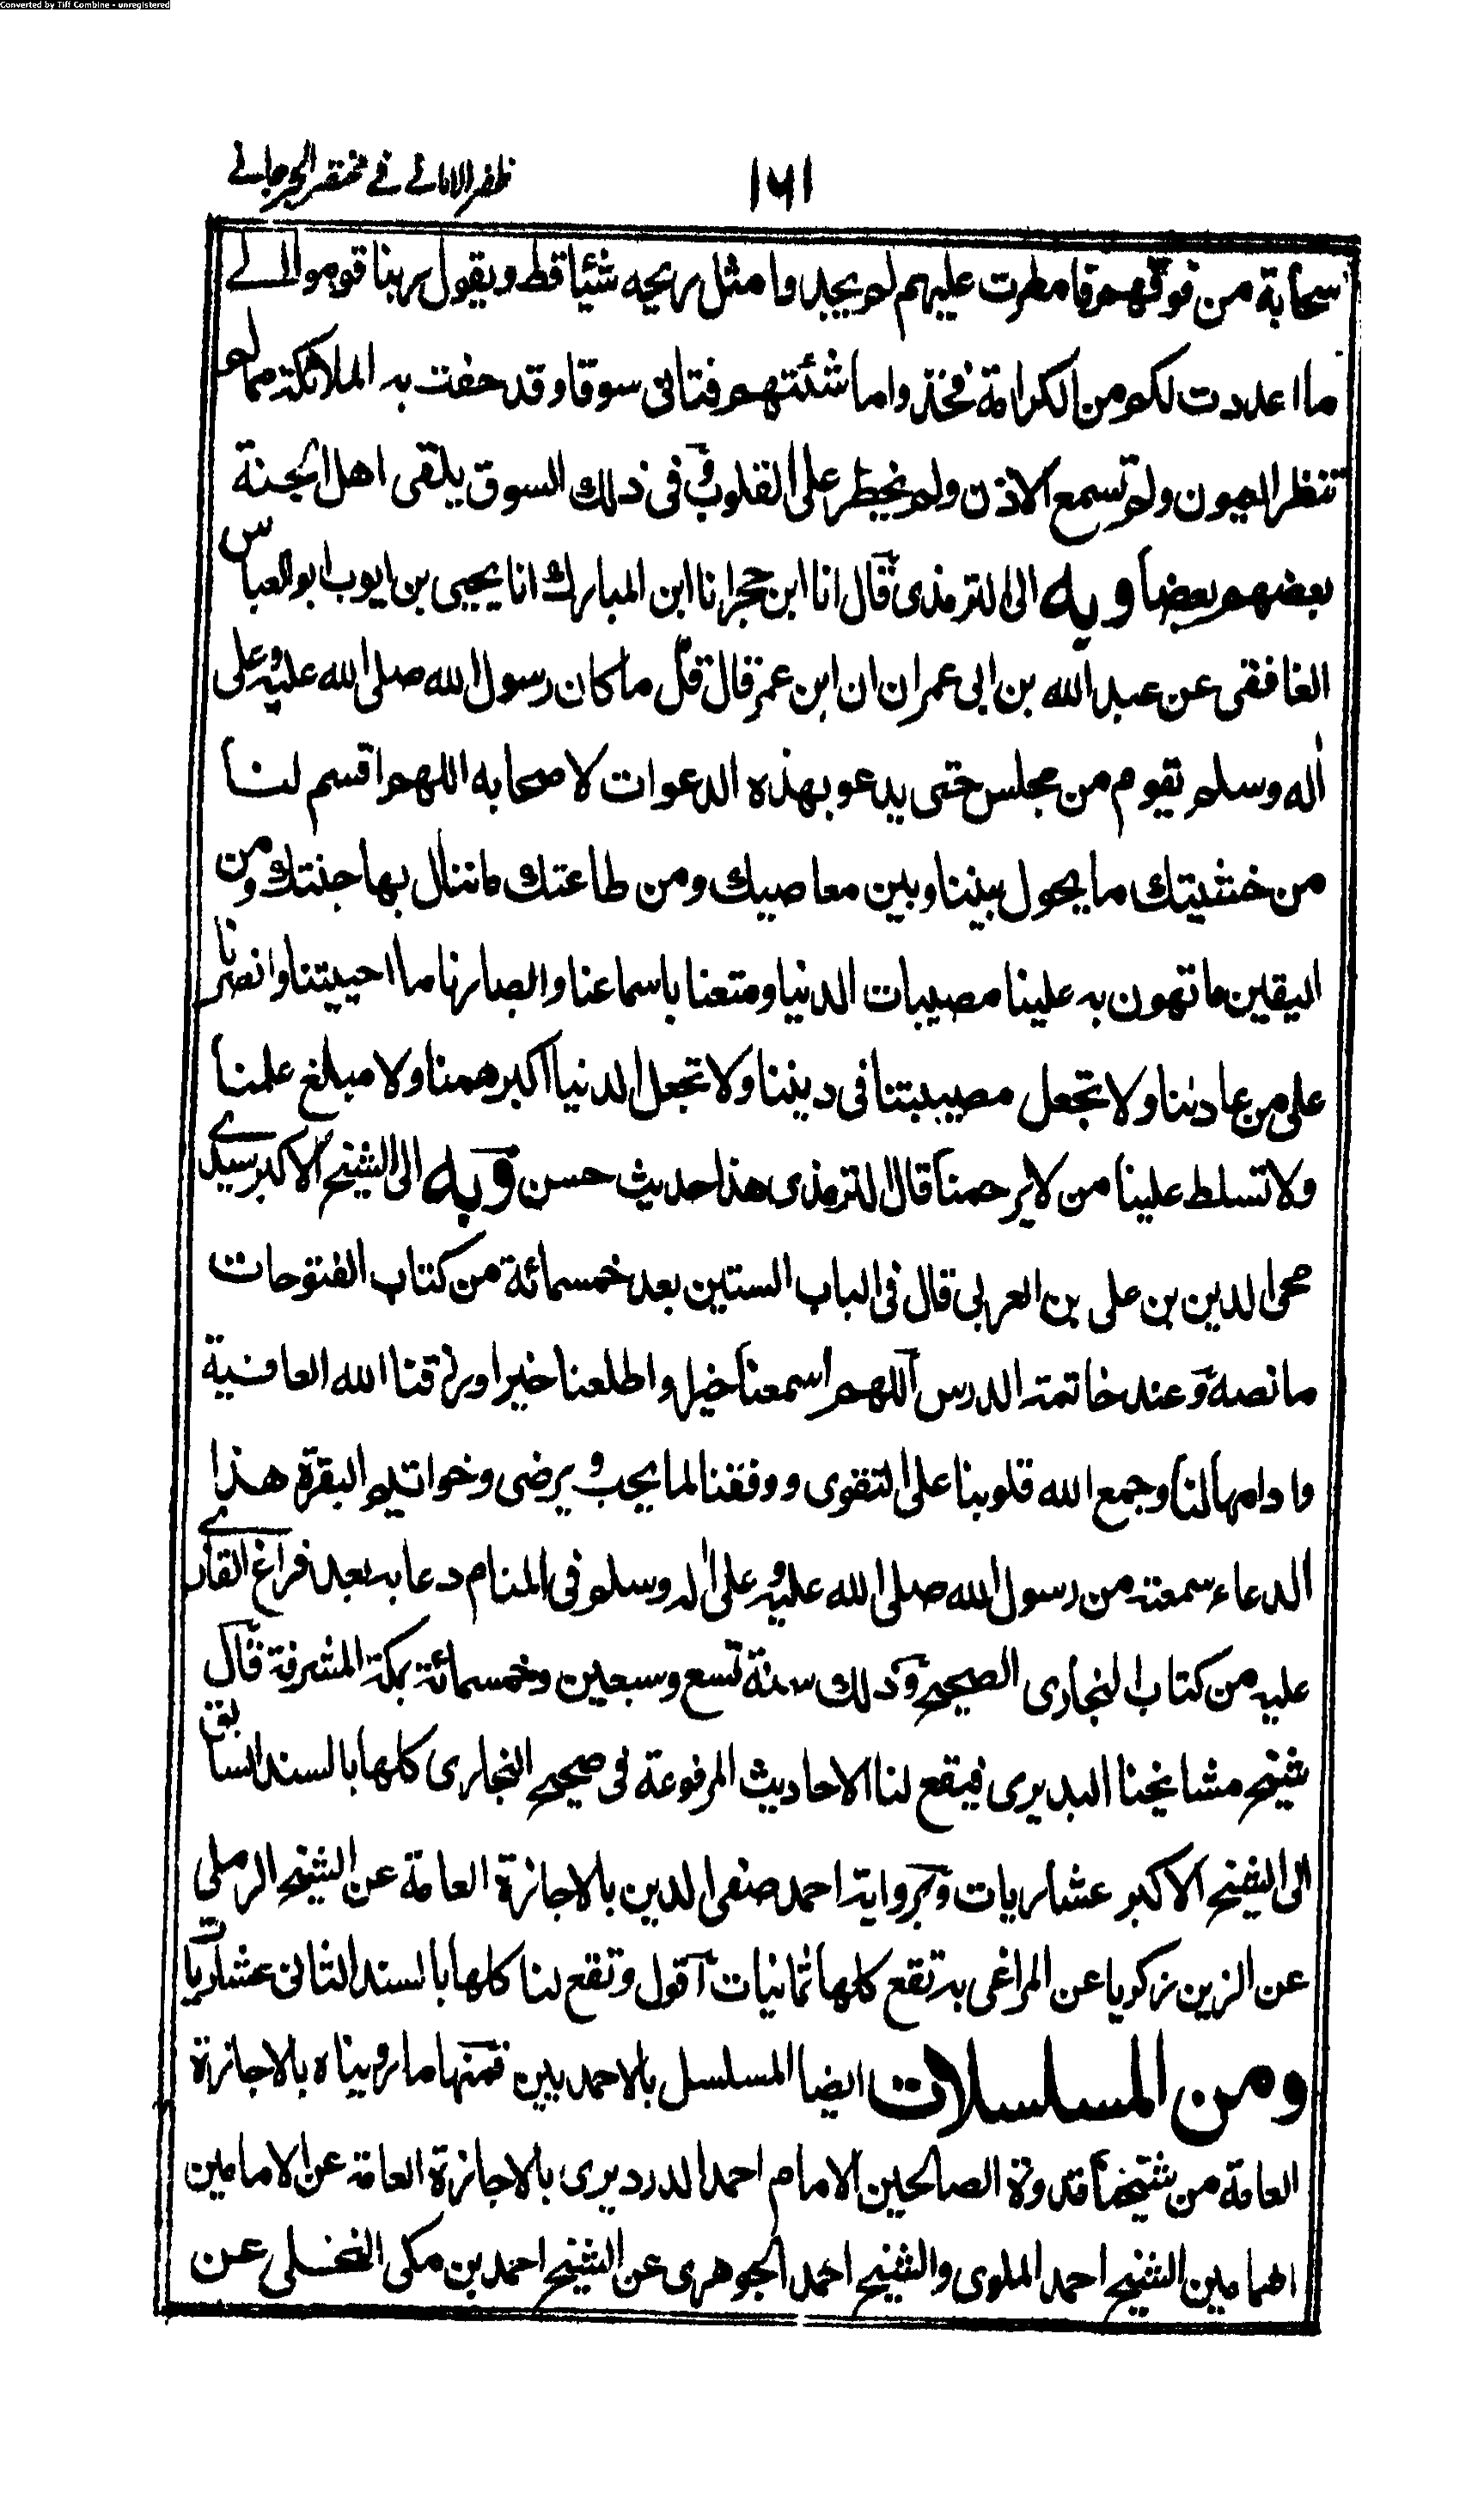 Converted by Tiff Combine - unregistered
ظفر الاماني في مختصر الجرجاني
١٦١
سحابة من فوقهم فامطرت عليهم لم يجدوا مثل ريحه شيئا قط ويقول ربنا قوموا الى
ما اعددت لكم من الكرامة فخذوا ما شئتهم فتاتى سوقا وقد حفت به الملائكة مما لم
تنظر العيون ولم تسمع الاذن ولم يخطر على القلوب وفى ذلك السوق يلقى اهل الجنة
بعضهم بعضا وبه الى الترمذى قال انا ابن حجر انا ابن المبارك انا يحيى بن ايوب ابو العباس
الغافقى عن عبد الله بن ابى عمران ان ابن عمر قال قل ما كان رسول الله صلى الله عليه وعلى
اله وسلم يقوم من مجلس حتى يدعو بهذه الدعوات لاصحابه اللهم اقسم لنا
من خشيتك ما يحول بيننا وبين معاصيك ومن طاعتك ما ننال بها جنتك ومن
اليقين ما تهون به علينا مصيبات الدنيا ومتعنا باسماعنا وابصارنا ما احييتنا وانصرنا
على من عادانا ولا تجعل مصيبتنا فى ديننا ولا تجعل الدنيا اكبر همنا ولا مبلغ علمنا
ولا تسلط علينا من لا يرحمنا قال الترمذى هذا حديث حسن وبه الى الشيخ الاكبر سيدى
محى الدين بن على بن العربى قال فى الباب الستين بعد خمسمائة من كتاب الفتوحات
ما نصه وعند خاتمة الدرس اللهم اسمعنا خيرا واطلعنا خيرا ورزقنا الله العافية
وادامها لنا وجمع الله قلوبنا على التقوى ووفقنا لما يحب ويرضى وخواتيم البقرة هذا
الدعاء سمعته من رسول الله صلى الله عليه وعلى اله وسلم فى المنام دعا به بعد فراغ القارى
عليه من كتاب البخارى الصحيح وذلك سنة تسع وسبعين وخمسمائة بمكة المشرفة قال
شيخ مشايخنا البديرى فيقع لنا الاحاديث المرفوعة فى صحيح البخارى كلها بالسند السابق
الى الشيخ الاكبر عشاريات وبرواية احمد صفى الدين بالاجازة العامة عن الشيخ الرملى
عن الزين زكريا عن المراغى به تقع كلها ثمانيات اقول وتقع لنا كلها بالسند الثانى عشاريات
ومن المسلسلات ايضا المسلسل بالاحمديين فمنها ما رويناه بالاجازة
العامة من شيخنا قدوة الصالحين الامام احمد الدرديرى بالاجازة العامة عن الامامين
الهمامين الشيخ احمد الملوى والشيخ احمد الجوهرى عن الشيخ احمد بن مكى النخلى عن